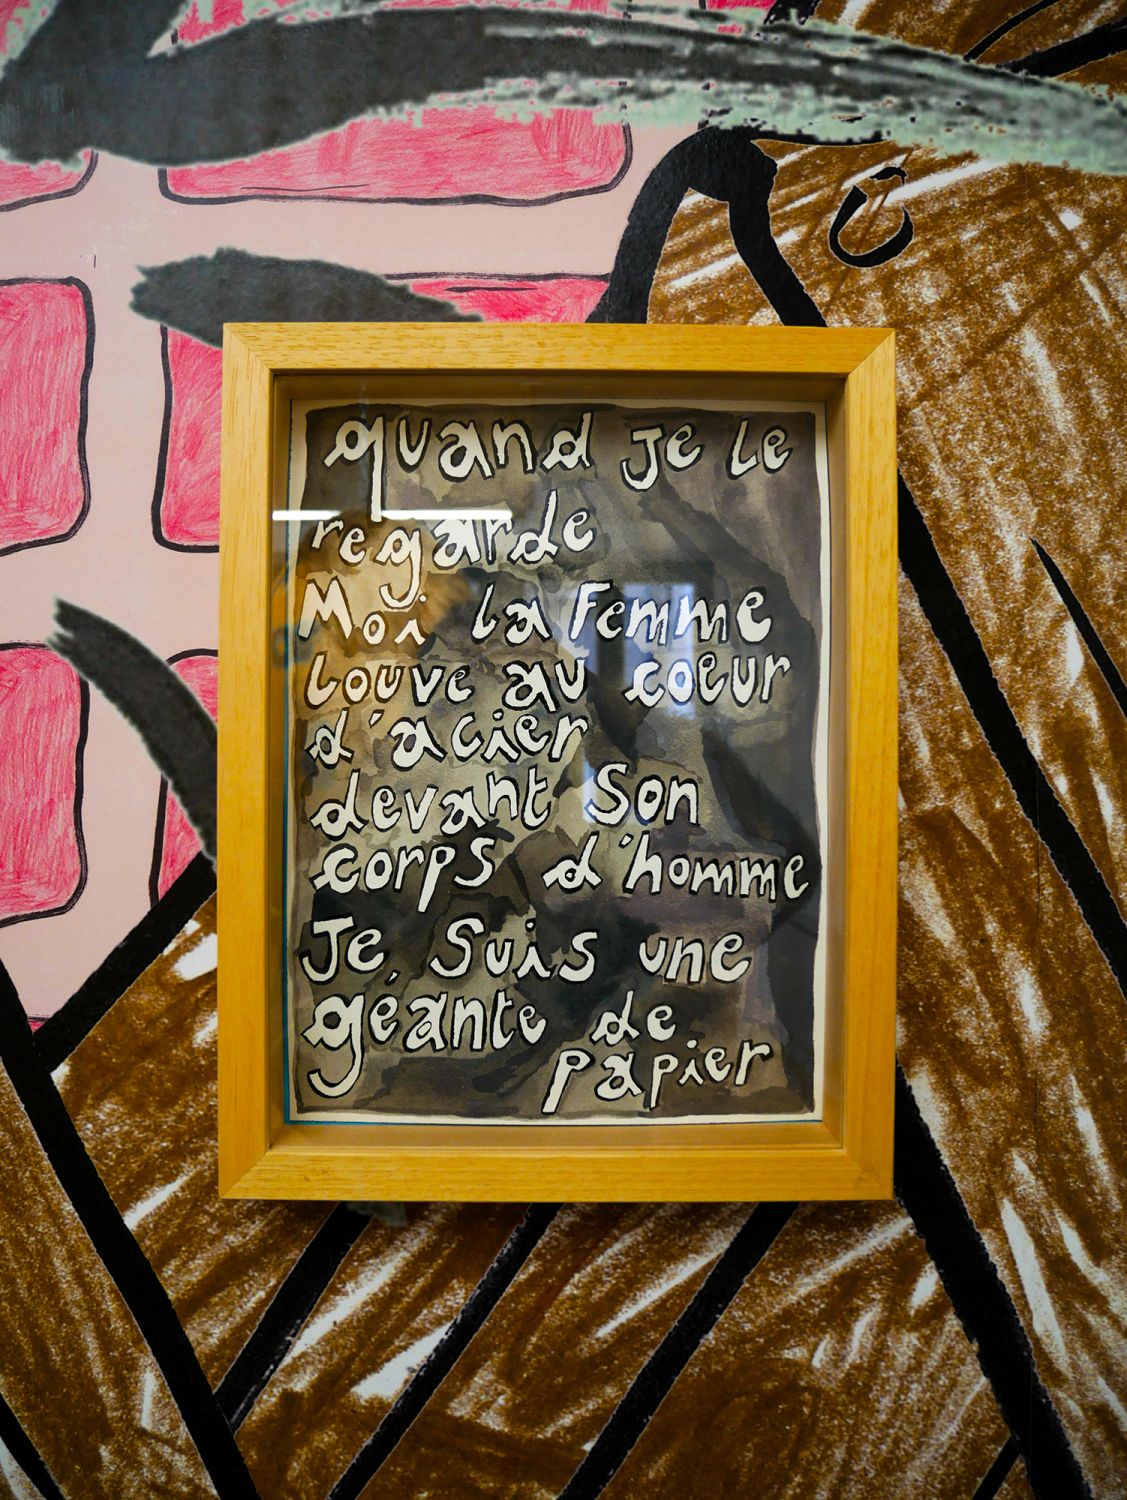 quand Je Le
regarde
Moi la Femme
Louve au coeur
d'acier
devant Son
corps d'homme
Je Suis une
géante de
papier